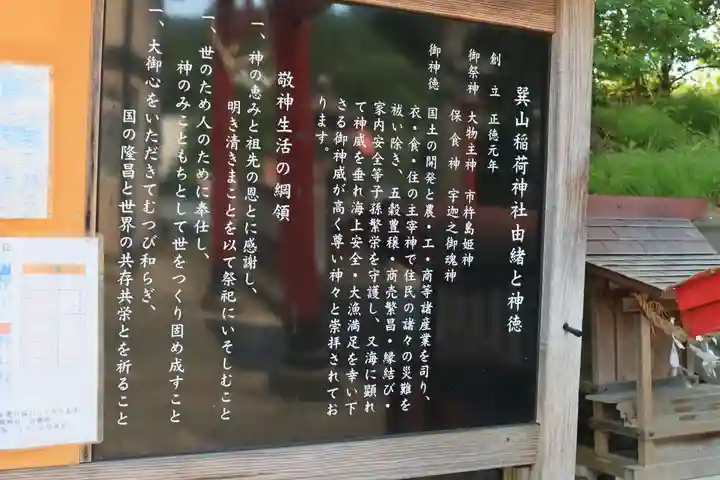 巽山稲荷神社由緒と神徳
創立 正徳元年
御祭神 大物主神 市杵島姫神
保食神 宇迦之御魂神
御神徳 国土の開発と農・工・商等諸産業を司り、
衣・食・住の主宰神で住民の諸々の災難を
祓い除き、五穀豊穣・商売繁昌・縁結び・
家内安全等子孫繁栄を守護し、又海に顕れ
て神威を垂れ海上安全・大漁満足を幸い下
さる御神威が高く尊い神々と崇拝されてお
ります。
敬神生活の綱領
一、神の恵みと祖先の恩とに感謝し、
明き清きまことを以て祭祀にいそしむこと
一、世のため人のために奉仕し、
神のみこともちとして世をつくり固め成すこと
一、大御心をいただきてむつび和らぎ、
国の隆昌と世界の共存共栄とを祈ること